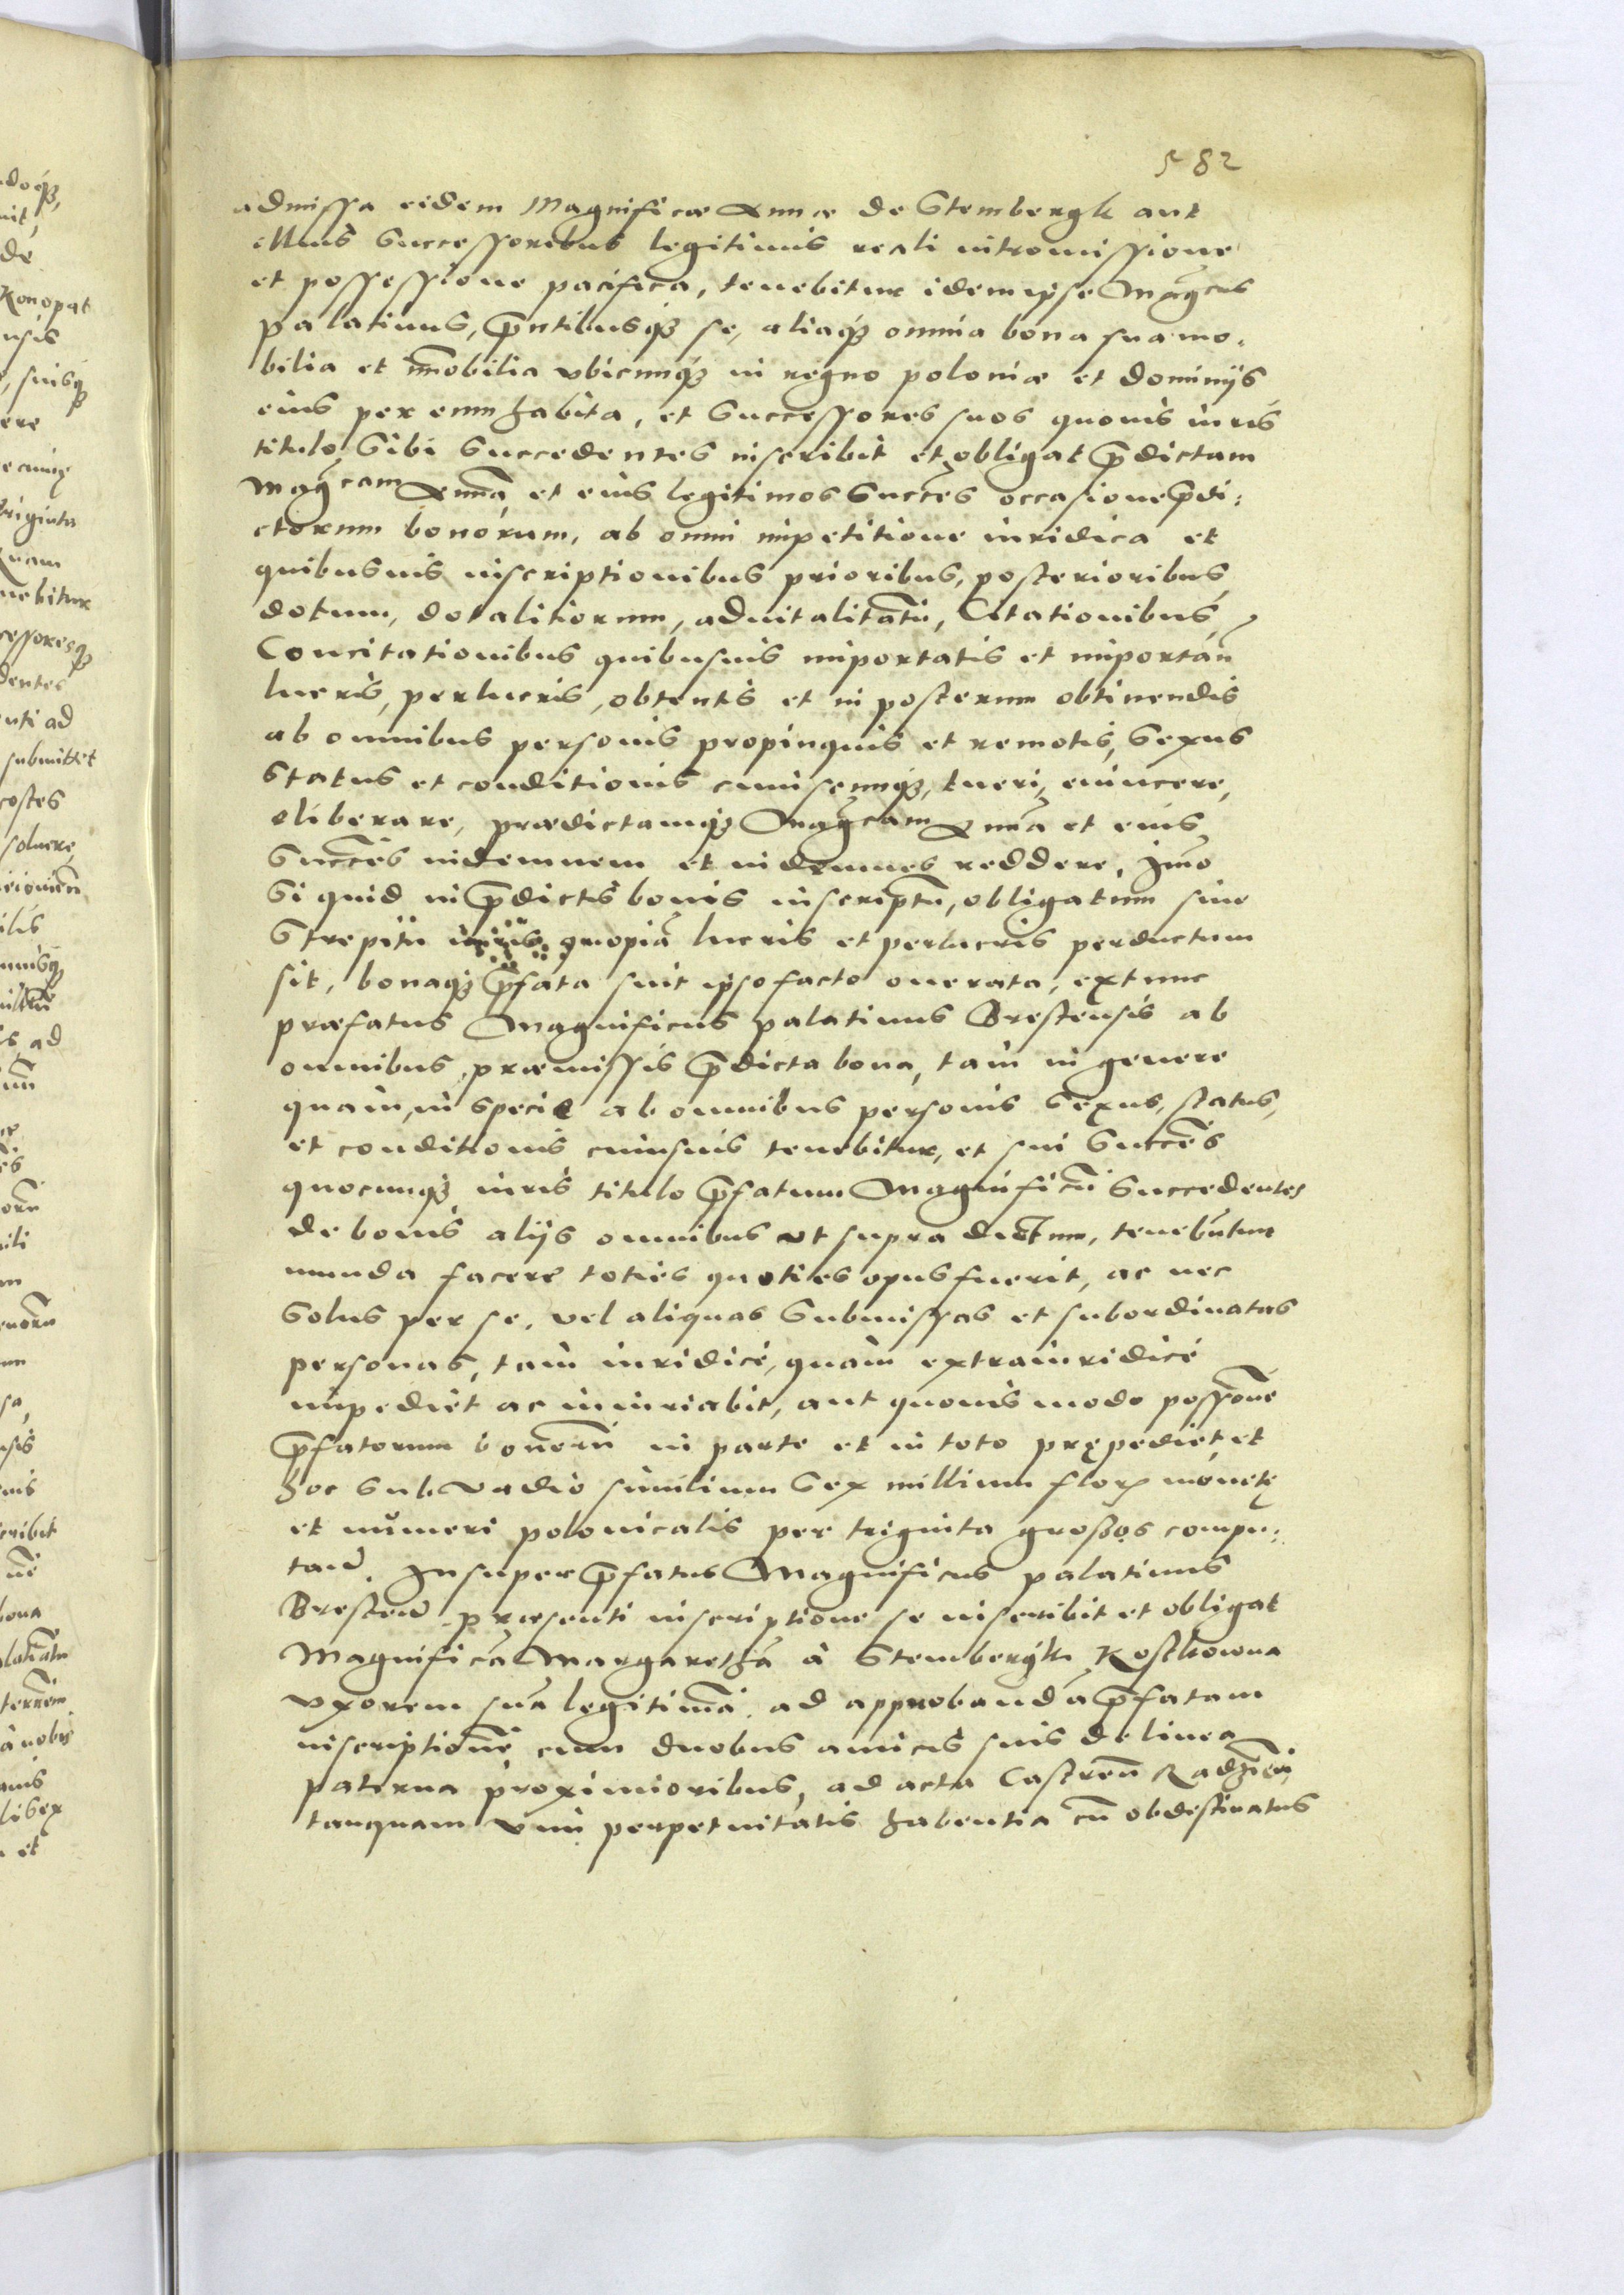 582
admissa eidem Magnificæ Annæ de Stembergk aut
illius Successoribus legitimis reali intromissione
et possessione pacifica, tenebitur idem ipse Mag̃cus
palatinus, p̃ntibusq́ꝫ se, aliaq́ꝫ omnia bona sua mo:
bilia et im̃obilia vbicunq́ꝫ in regno poloniæ et dominijs
eius per eum habita, et Successores suos quouis iuris
titulo Sibi Succedentes inscribit et obligat p̃dictam
Mag̃cam Annã et eius legitimos Succes̃ occasione p̃di:
ctorum bonorum, ab omni impetitione iuridica et
quibusuis inscriptionibus prioribus, posterioribus,
dotum, dotalitiorum, aduitalitatũ, Citationibus,
Concitationibus quibusuis importatis et importan̄
lucris, perlucris, obtentis et in posterum obtinendis
ab omnibus personis propinquis et remotis, Sexus
Status et conditionis cuiuscunq́ꝫ, tueri, euincere,
eliberare, prædictamq́ꝫ Mag̃cam Annã et eius
Succes̃ indemnem et indemnes reddere, Imo
Si quid in p̃dictis bonis inscriptũ, obligatum siue
Strepitu iuris quopiã lucris et perlucris perductum
sit, bonaq́ꝫ p̃fata sint ipso facto onerata, extunc
præfatus Magnificus palatinus Brestensis ab
omnibus præmissis p̃dicta bona, tam in genere
quàm, in specie ab omnibus personis Sexus, status,
et conditionis cuiusuis tenebitur, et sui Succes̃
quocunq́ꝫ iuris titulo p̃fatum Magnificũ Succedentes
de bonis alijs omnibus vt supra dictum, tenebũtur
munda facere toties quoties opus fuerit, ac nec
Solus per se, vel aliquas Submissas et subordinatas
personas, tam iuridicè, quàm extraiuridicè
impediet ac iniuriabit, aut quouis modo possiõne
p̃fatorum bonorũ in parte et in toto prępediet, et
hoc Sub vadio similium Sex millium floꝝ monetę
et numeri polonicalis per triginta grossos compu:
tan̄. Insuper p̃fatus Magnificus palatinus
Bresten̄ præsenti inscriptione se inscribit et obligat
Magnificã Margarethã à Stembergk Kostkowna
vxorem suã legitimã ad approbandã p̃fatam
inscriptionẽ cum duobus amicis suis de linea
paterna proximioribus, ad acta Castren̄ Radzień
tanquam vim perpetuitatis habentia cũ obdestinatus